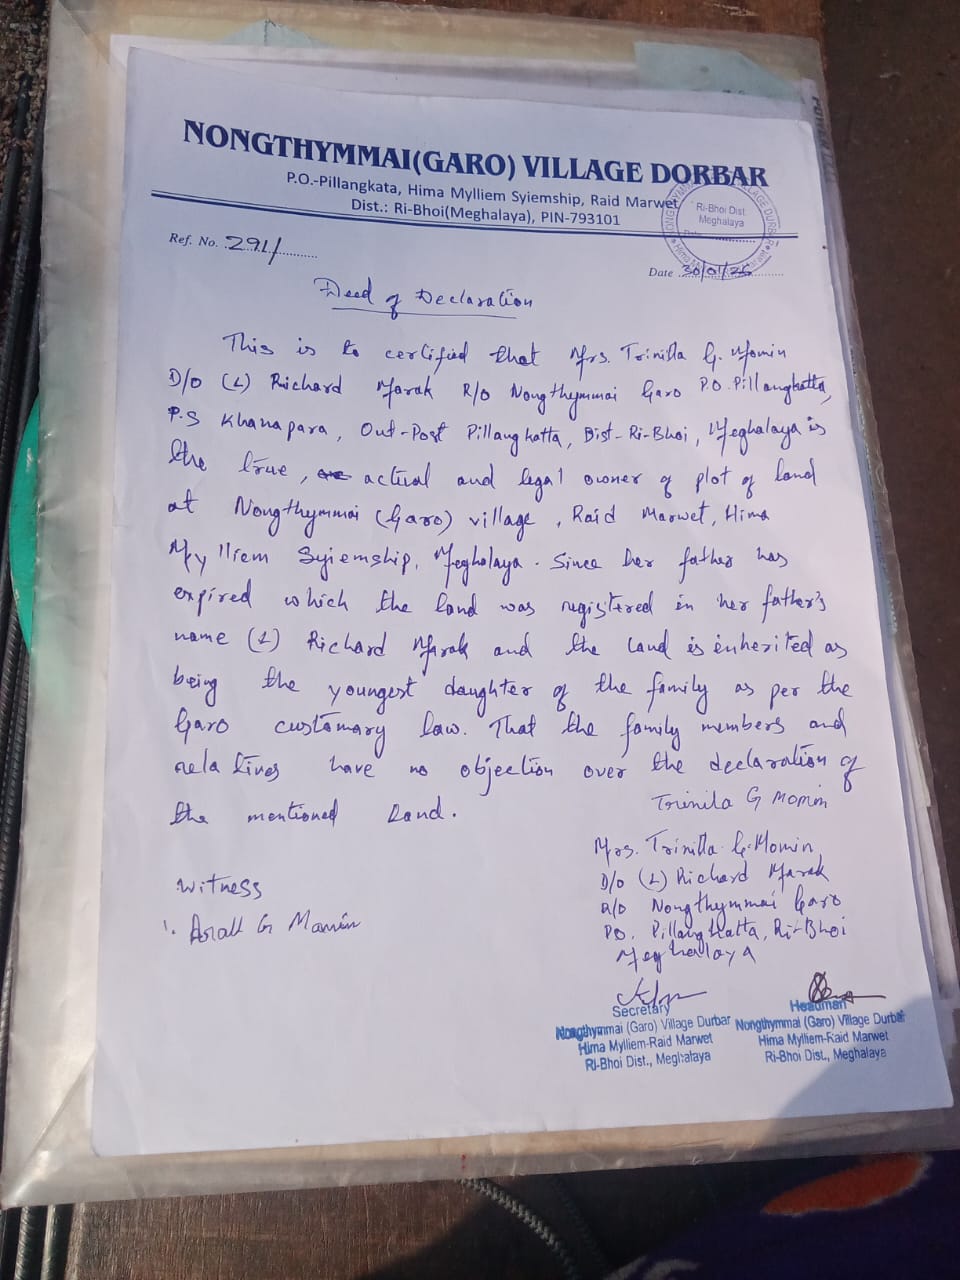 NONGTHYMMAI(GARO) VILLAGE DORBAR
P.O.-Pillangkata, Hima Mylliem Syiemship, Raid Marwet
Dist.: Ri-Bhoi(Meghalaya), PIN-793101
Ri-Bhoi Dist
Meghalaya
Ref. No. 291/
Date 30/01/25
Deed of Declaration
This is to certified that Mrs. Trinilla G. Momin
D/o (L) Richard Marak R/o Nongthymmai Garo P.O. Pillangkatta,
P.S Khanapara, Out-Post Pillangkatta, Dist-Ri-Bhoi, Meghalaya is
the true, actual and legal owner of plot of land
at Nongthymmai (Garo) village, Raid Marwet, Hima
Mylliem Syiemship, Meghalaya. Since her father has
expired which the land was registered in her father's
name (L) Richard Marak and the land is inherited as
being the youngest daughter of the family as per the
Garo customary law. That the family members and
relatives have no objection over the declaration of
the mentioned land.
Trinila G Momin
Mrs. Trinilla G. Momin
D/o (L) Richard Marak
R/o Nongthymmai Garo
PO. Pillangkatta, Ri-Bhoi
Meghalaya
Witness
1. G Mamin
Secretary
Nongthymmai (Garo) Village Durbar
Hima Mylliem-Raid Marwet
Ri-Bhoi Dist., Meghalaya
Headman
Nongthymmai (Garo) Village Durbar
Hima Mylliem-Raid Marwet
Ri-Bhoi Dist., Meghalaya